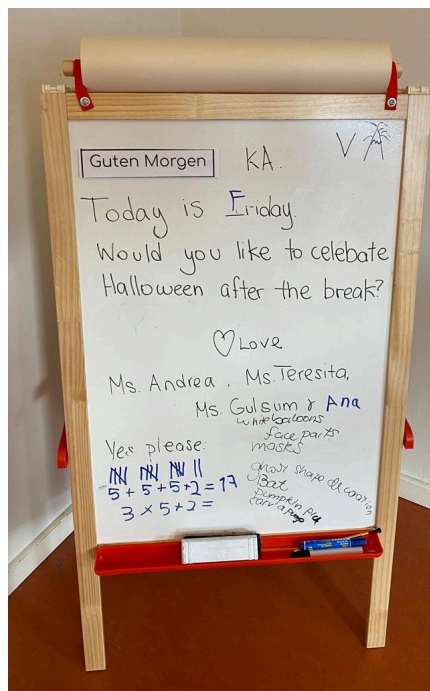 Guten Morgen KA.
Today is Friday.
Would you like to celebate
Halloween after the break?
Love
Ms. Andrea. Ms. Teresita,
Ms. Gulsum & Ana
white baloons
face parts
masks
Yes please:
5 + 5 + 5 + 2 = 17
3 x 5 + 2 =
ghost shape decoration
Bat
pumpkin
carv a